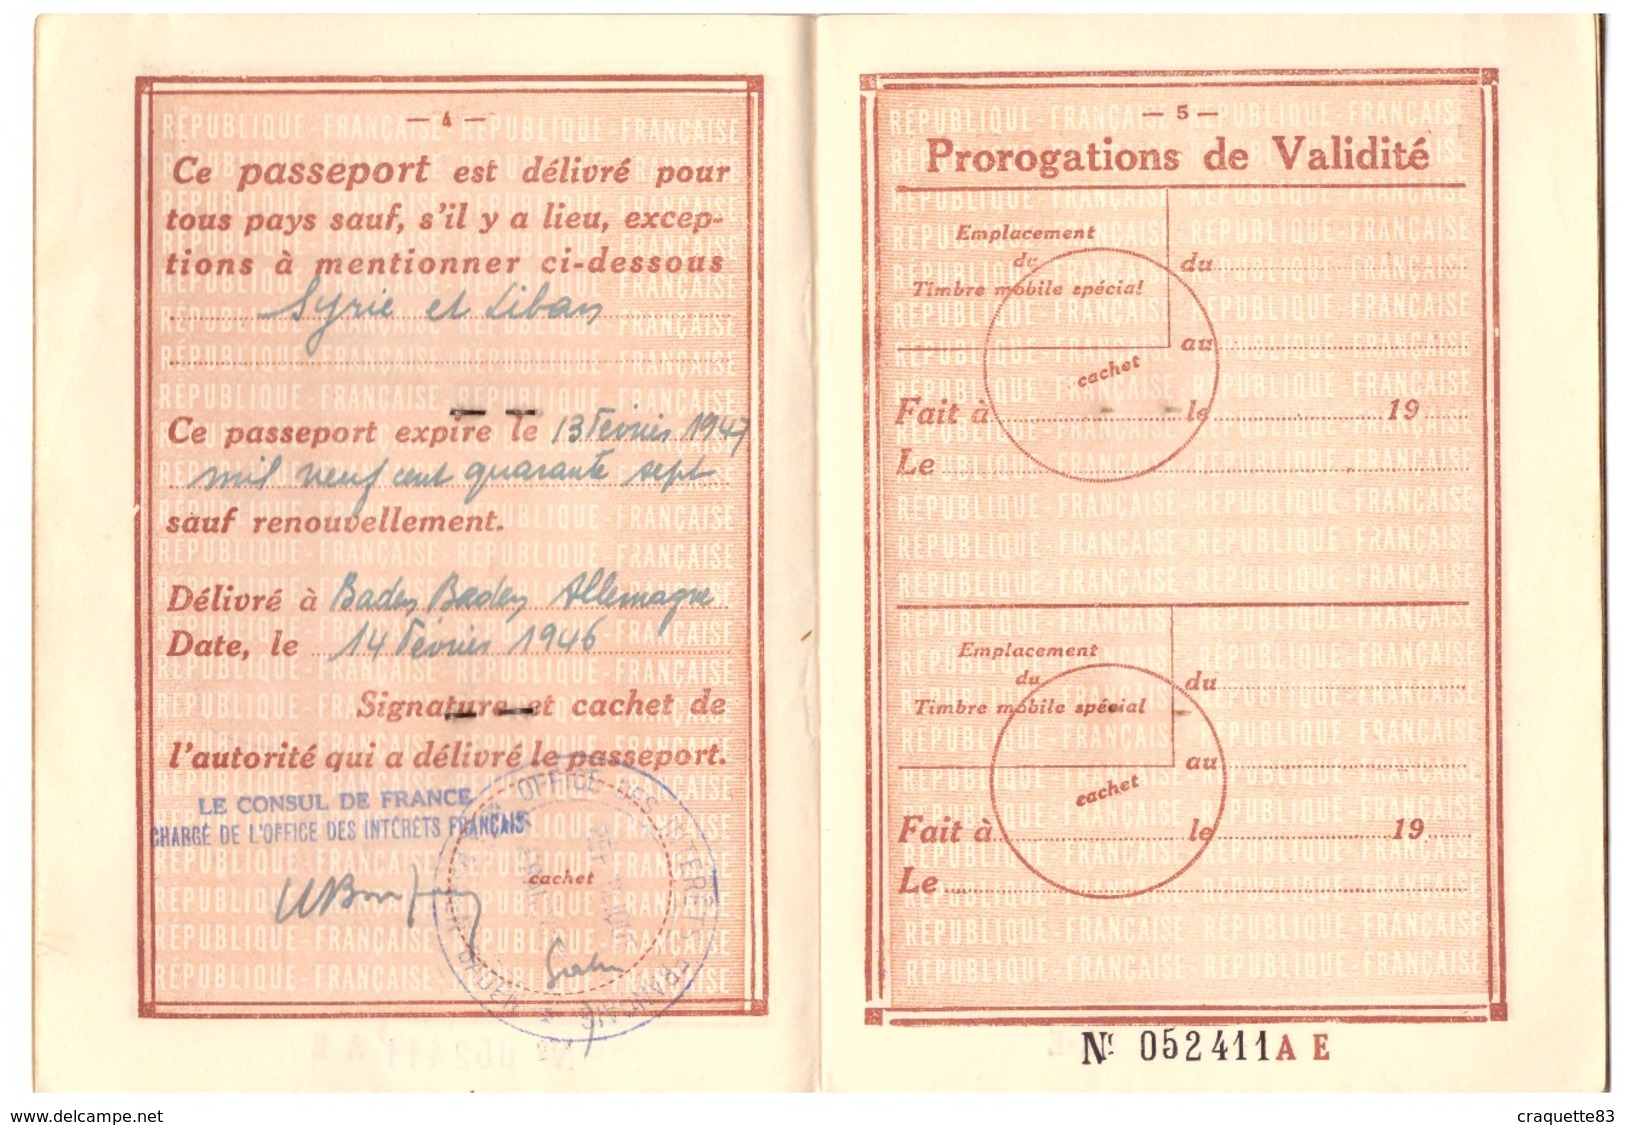 — 4 —
Ce passeport est délivré pour
tous pays sauf, s'il y a lieu, excep-
tions à mentionner ci-dessous
Syrie et Liban
Ce passeport expire le 13 Février 1947
mil neuf cent quarante sept
sauf renouvellement.
Délivré à Baden Baden Allemagne
Date, le 14 Février 1946
Signature et cachet de
l'autorité qui a délivré le passeport.
LE CONSUL DE FRANCE
CHARGÉ DE L'OFFICE DES INTÉRÊTS FRANÇAIS
OFFICE DES INTERETS FRANCAIS
cachet
— 5 —
Prorogations de Validité
Emplacement
du
Timbre mobile spécial
du
au
cachet
Fait à le 19
Le
Emplacement
du
Timbre mobile spécial
du
au
cachet
Fait à le 19
Le
Nº 052411 A E
RÉPUBLIQUE - FRANÇAISE - RÉPUBLIQUE - FRANÇAISE
www.delcampe.net
craquette83